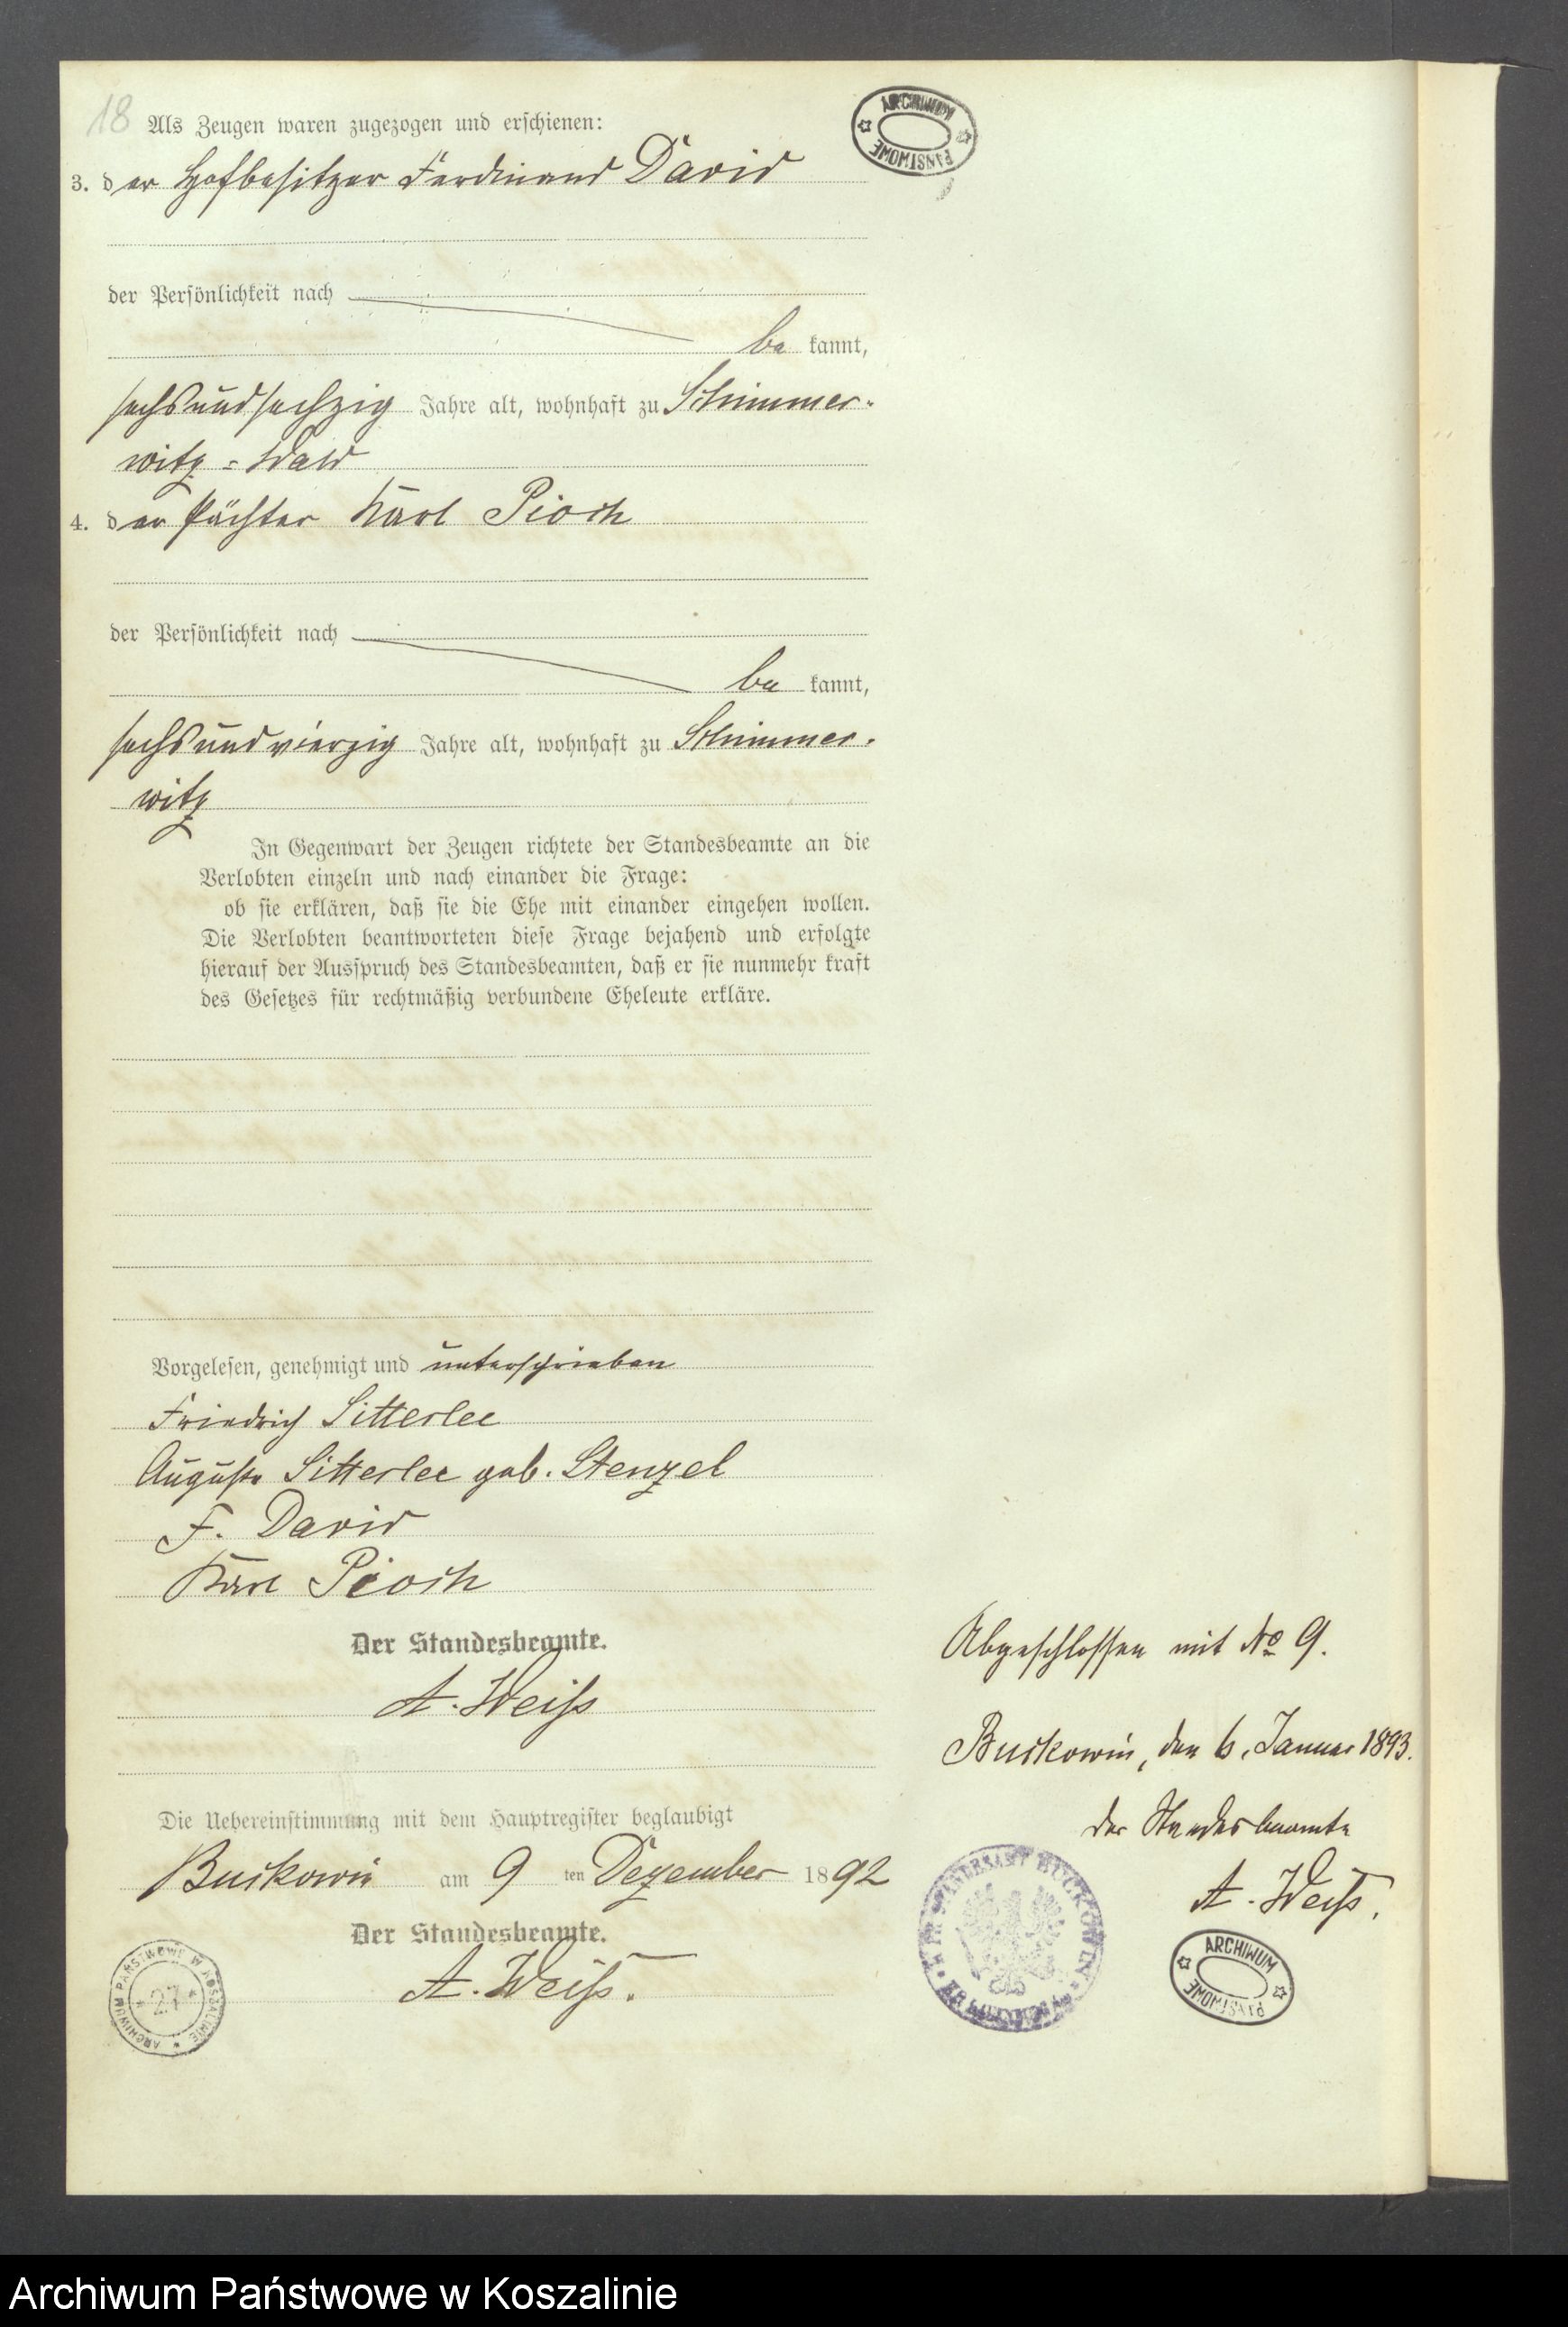 18
Als Zeugen waren zugezogen und erschienen:
ARCHIWUM PAŃSTWOWE
3. der Hofbesitzer Ferdinand David
der Persönlichkeit nach
be kannt,
sechsundsechzig Jahre alt, wohnhaft zu Schimmer-
witz-Wald
4. der Pächter Karl Pioch
der Persönlichkeit nach
be kannt,
sechsundvierzig Jahre alt, wohnhaft zu Schimmer-
witz
In Gegenwart der Zeugen richtete der Standesbeamte an die
Verlobten einzeln und nach einander die Frage:
ob sie erklären, daß sie die Ehe mit einander eingehen wollen.
Die Verlobten beantworteten diese Frage bejahend und erfolgte
hierauf der Ausspruch des Standesbeamten, daß er sie nunmehr kraft
des Gesetzes für rechtmäßig verbundene Eheleute erkläre.
Vorgelesen, genehmigt und unterschrieben
Friedrich Sitterlee
Auguste Sitterlee geb. Stenzel
F. David
Karl Pioch
Der Standesbeamte.
A. Weiß
Die Uebereinstimmung mit dem Hauptregister beglaubigt
Buckowin am 9 ten Dezember 1892
Der Standesbeamte.
A. Weiß.
ARCHIWUM PAŃSTWOWE W KOSZALINIE
27
Abgeschlossen mit No 9.
Buckowin, den 6. Januar 1893.
der Standesbeamte
A. Weiß.
STANDESAMT BUCKOWIN
ARCHIWUM PAŃSTWOWE
Archiwum Państwowe w Koszalinie